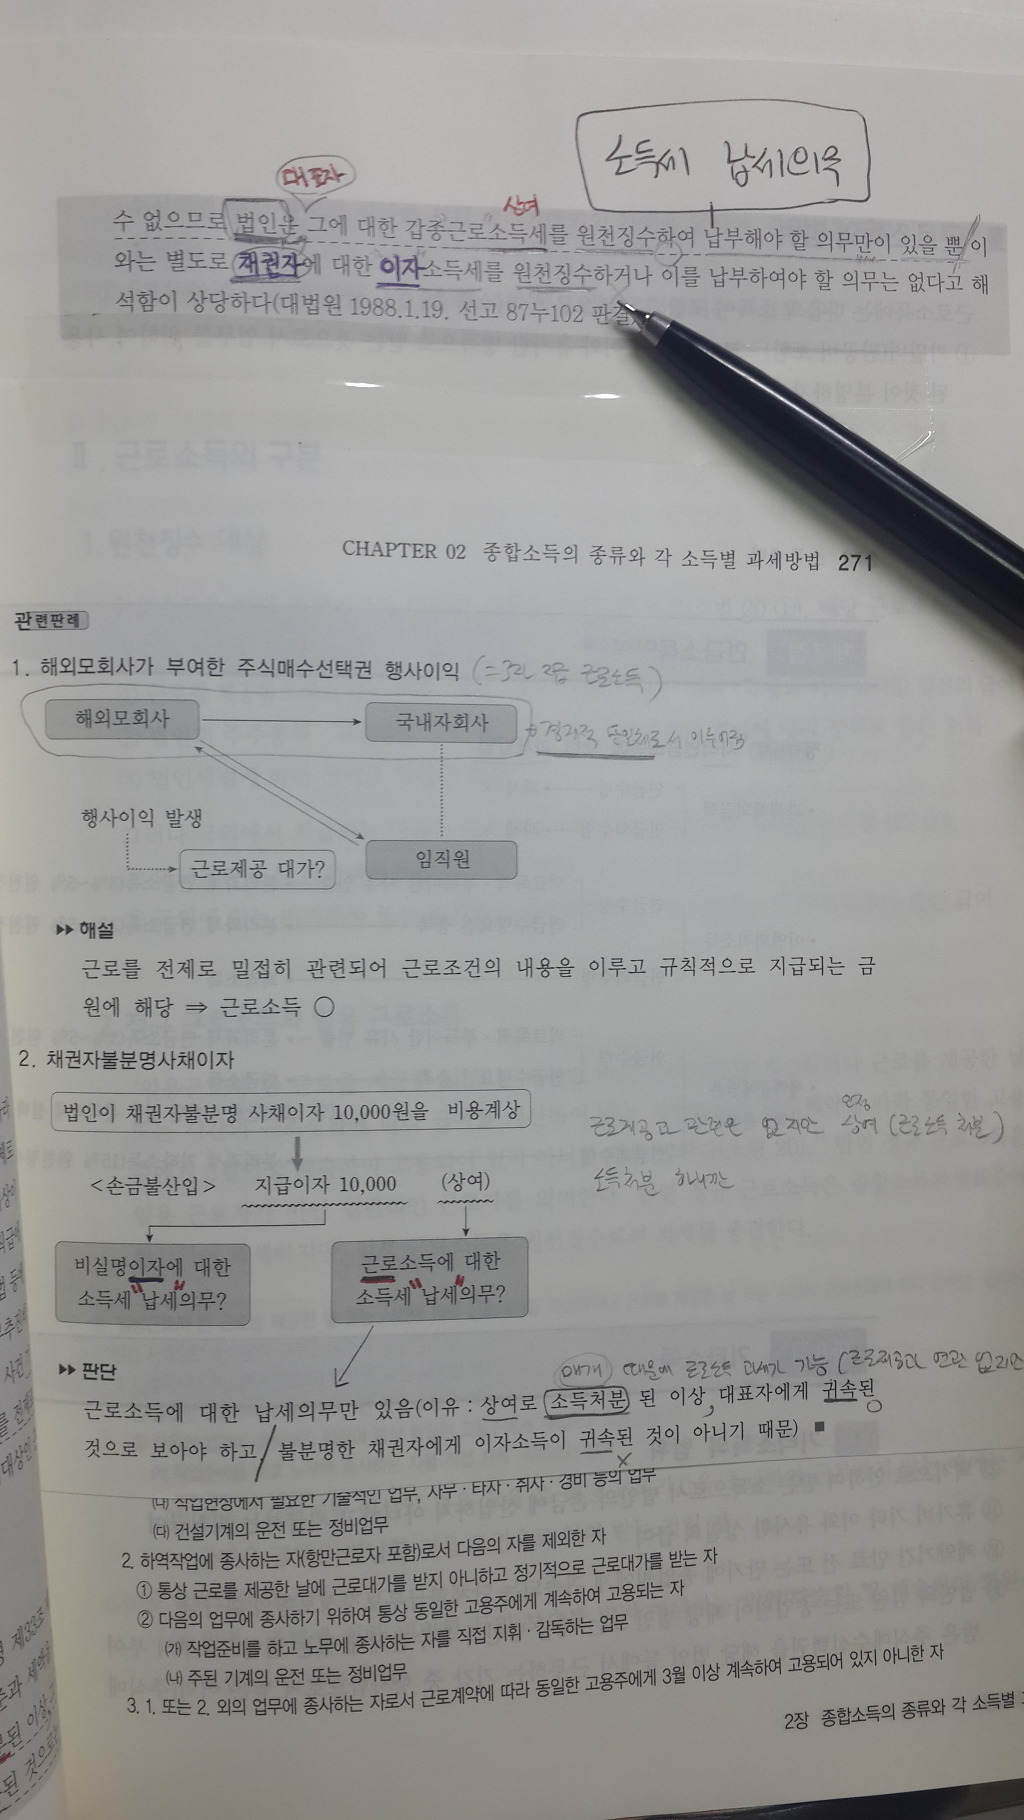 소득세 납세의무
대표자
상여
수 없으므로 법인은 그에 대한 갑종근로소득세를 원천징수하여 납부해야 할 의무만이 있을 뿐 이
와는 별도로 채권자에 대한 이자소득세를 원천징수하거나 이를 납부하여야 할 의무는 없다고 해
석함이 상당하다(대법원 1988.1.19. 선고 87누102 판결)
CHAPTER 02 종합소득의 종류와 각 소득별 과세방법 271
관련판례
1. 해외모회사가 부여한 주식매수선택권 행사이익 근로소득)
해외모회사 국내자회사
행사이익 발생
근로제공 대가? 임직원
▶▶ 해설
근로를 전제로 밀접히 관련되어 근로조건의 내용을 이루고 규칙적으로 지급되는 금
원에 해당 ⇒ 근로소득 ○
2. 채권자불분명사채이자
법인이 채권자불분명 사채이자 10,000원을 비용계상
인정
근로제공과 관련은 없지만 상여 (근로소득 처분)
<손금불산입> 지급이자 10,000 (상여)
소득처분 하니깐
비실명이자에 대한 근로소득에 대한
소득세 "납세"의무? 소득세 "납세"의무?
▶▶ 판단
때문에 근로소득 과세가 가능 (근로제공과 연관 없지만
근로소득에 대한 납세의무만 있음(이유 : 상여로 소득처분 된 이상, 대표자에게 귀속된
것으로 보아야 하고 불분명한 채권자에게 이자소득이 귀속된 것이 아니기 때문) ■
(나) 작업현장에서 필요한 기술적인 업무, 사무·타자·취사·경비 등의 업무
(다) 건설기계의 운전 또는 정비업무
2. 하역작업에 종사하는 자(항만근로자 포함)로서 다음의 자를 제외한 자
① 통상 근로를 제공한 날에 근로대가를 받지 아니하고 정기적으로 근로대가를 받는 자
② 다음의 업무에 종사하기 위하여 통상 동일한 고용주에게 계속하여 고용되는 자
(가) 작업준비를 하고 노무에 종사하는 자를 직접 지휘·감독하는 업무
(나) 주된 기계의 운전 또는 정비업무
3. 1. 또는 2. 외의 업무에 종사하는 자로서 근로계약에 따라 동일한 고용주에게 3월 이상 계속하여 고용되어 있지 아니한 자
2장 종합소득의 종류와 각 소득별